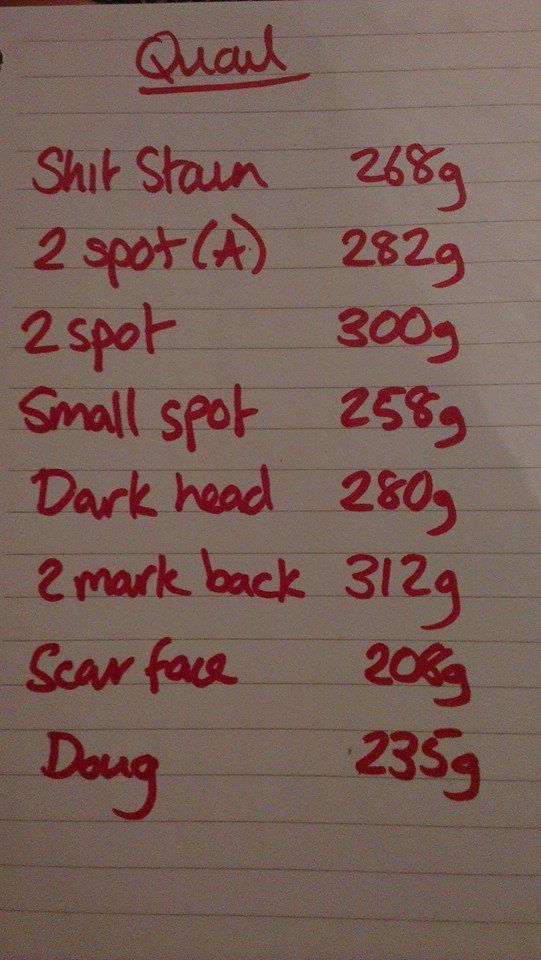 Quail
Shit Stain 268g
2 spot (A) 282g
2 spot 300g
Small spot 258g
Dark head 280g
2 mark back 312g
Scar face 208g
Doug 235g